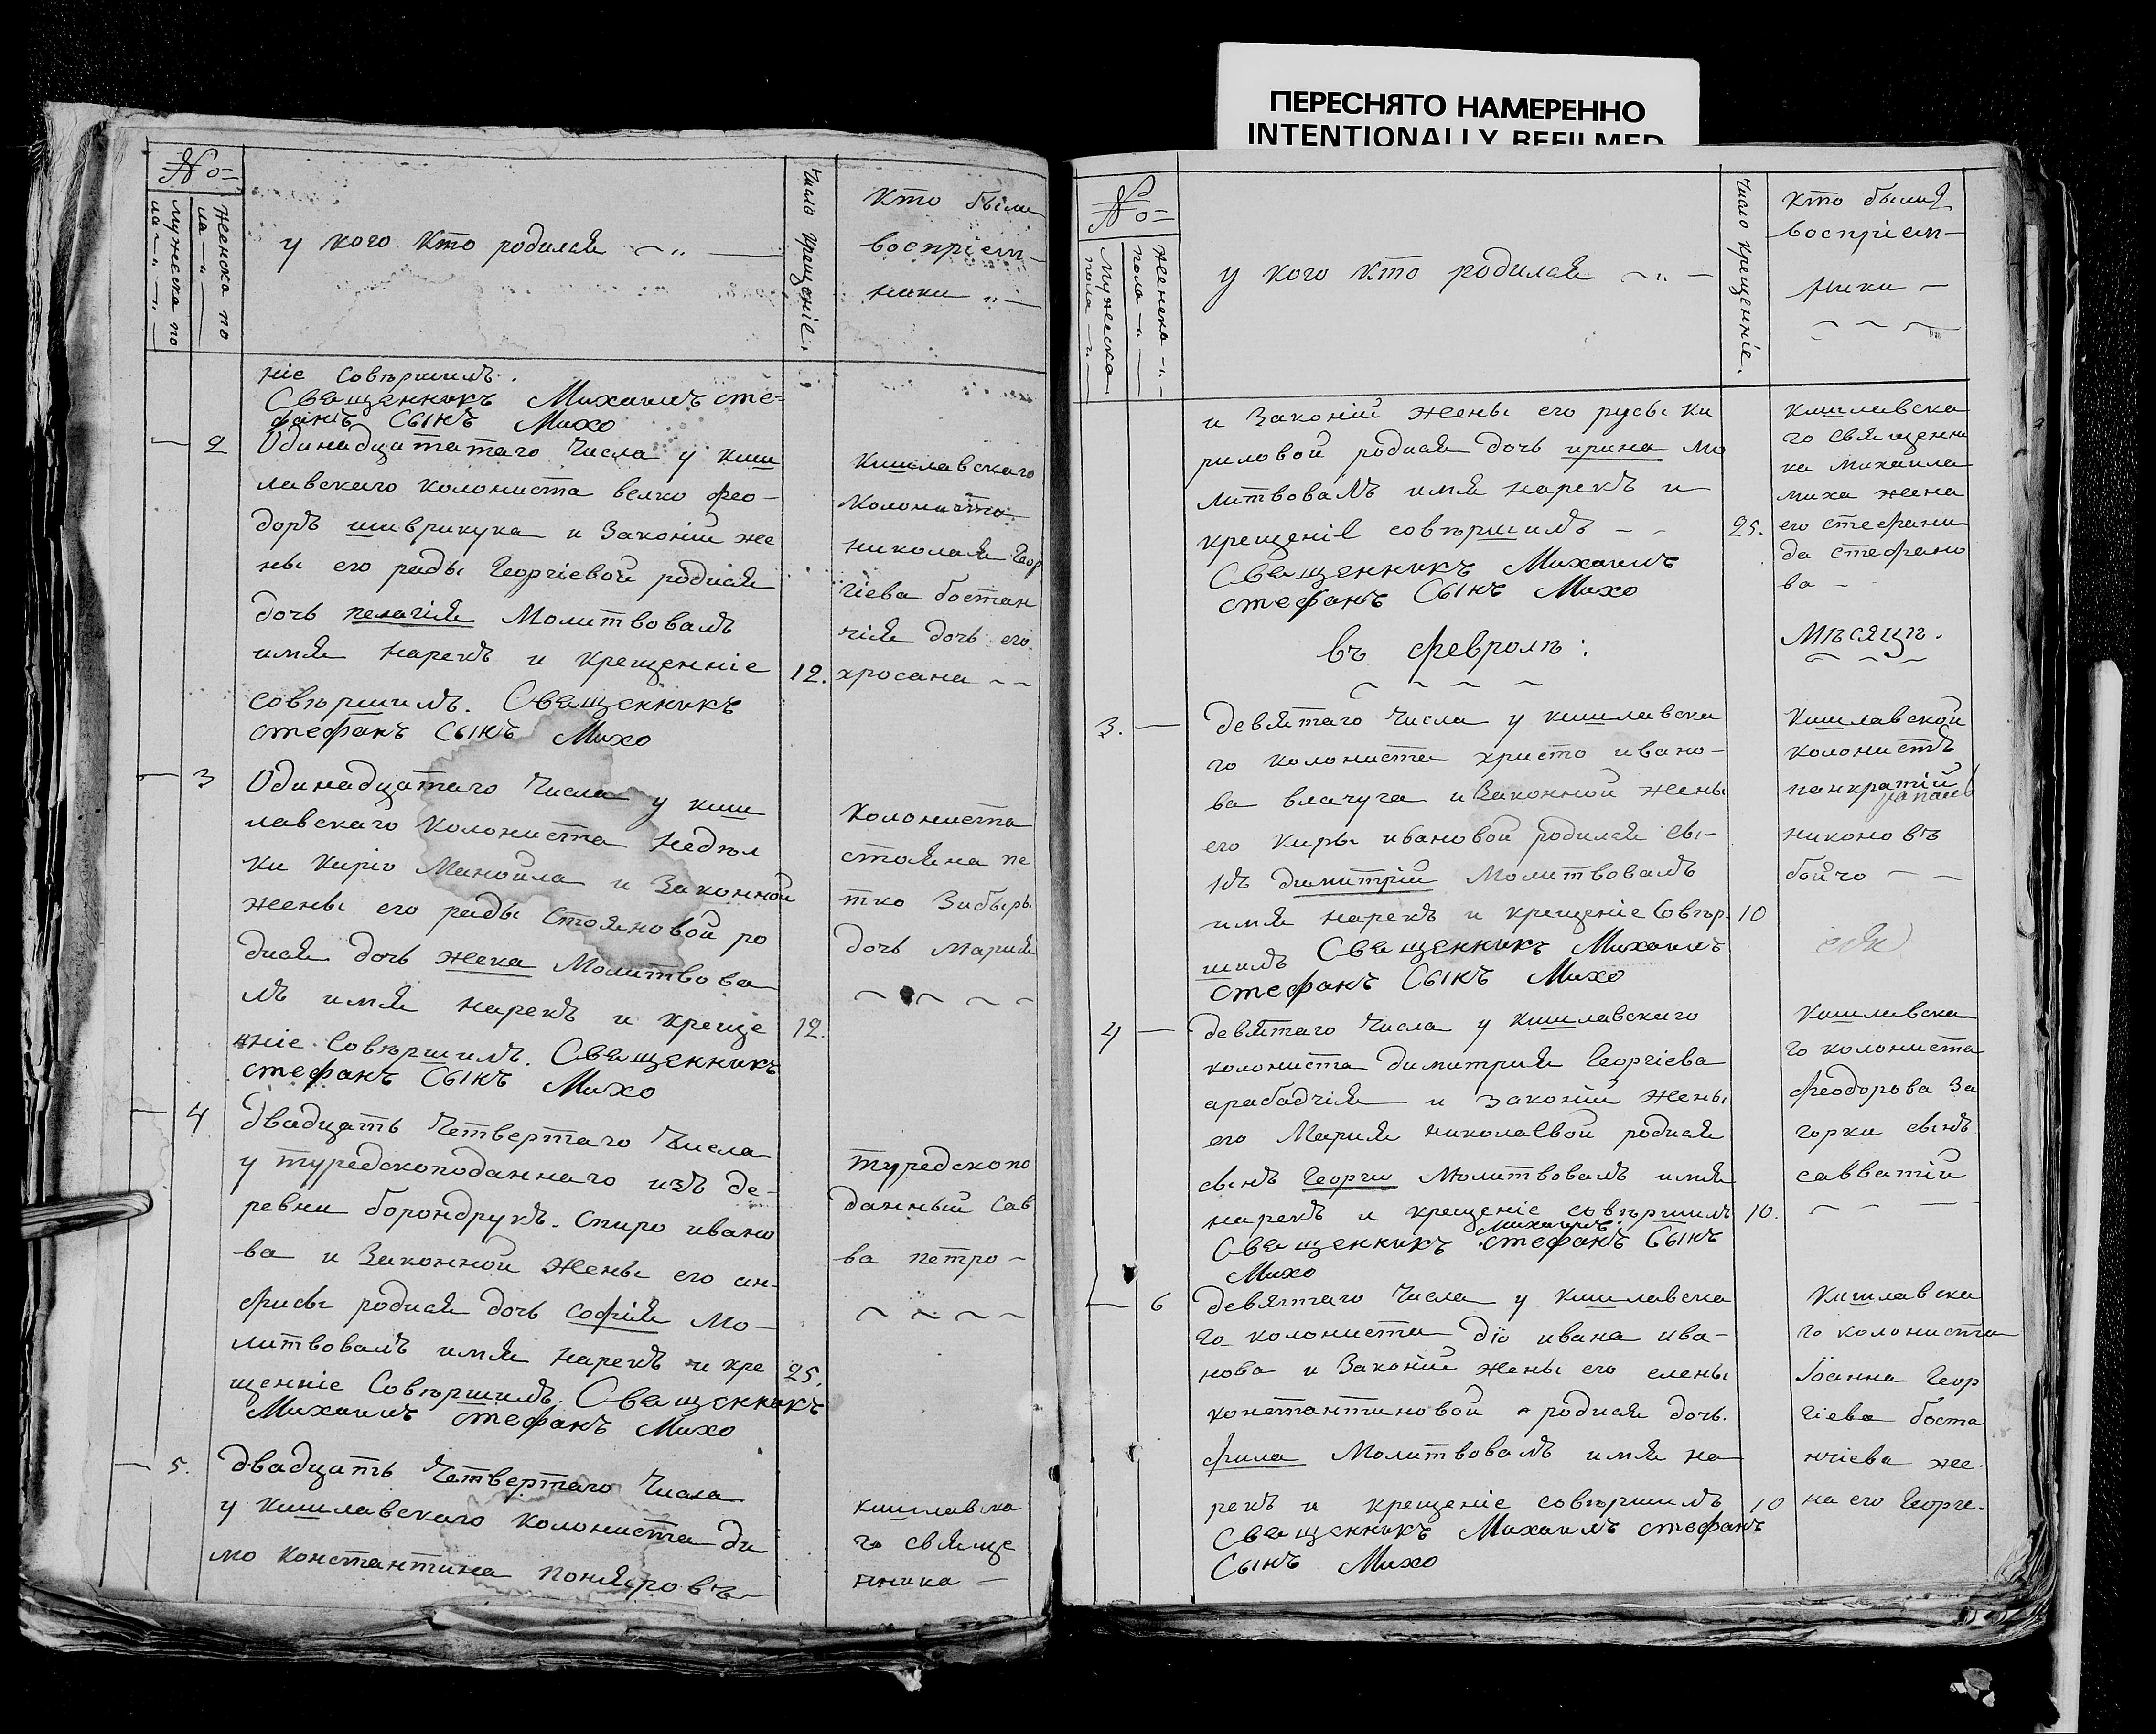 ПЕРЕСНЯТО НАМЕРЕННО
INTENTIONALLY REFILMED
№
Мужеска по
ла
Женска по
ла
у кого кто родился
Число крещеніе.
кто были
воспріем-
ники
ніе совѣршилъ.
Священникъ Михаилъ сте-
фанъ Сынъ Михо
2
Одинадцататаго Числа у киш
лавскаго колониста велко фео-
доръ шиврикука и Законій же
ны его рады Георгіевой родися
дочь пелагія Молитвовалъ
имя нарекъ и крещенніе
12.
совѣршилъ. Священникъ
стефанъ Сынъ Михо
Кишлавскаго
Колониста
николая Геор
гіева бостан
чія дочь его
хросана
3
Одинадцатаго Числа у киш
лавскаго колониста недѣл
ки киріо Манойла и Законной
жены его рады Стояновой ро
дися дочь жека Молитвова
лъ имя нарекъ и креще
12.
нніе Совѣршилъ. Священникъ
стефанъ Сынъ Михо
Колониста
стояна пе
тко Забыры
дочь Мария
4
двадцать Четвертаго Числа
у турецскоподаннаго изъ де-
ревни борондрукъ. Спиро ивано
ва и Законной Жены его ан-
фисы родися дочь софія Мо-
литвовалъ имя нарекъ и кре
25.
щенніе Совѣршилъ. Священникъ
Михаилъ стефанъ Михо
турецскопо
данный Сав
ва петро-
5.
двадцать Четвертаго Числа
у кишлавскаго колониста ди
мо константина поняровъ
кишлавска
го свяще
нника
№
Мужеска
пола
Женска
пола
у кого кто родился
Число крещенніе.
кто были
воспріем-
ники
и Законій жены его русы ки
риловой родися дочь ирина мо
литвовалъ имя нарекъ и
крещеніе совѣршилъ
25.
Священникъ Михаилъ
стефанъ Сынъ Михо
кишлавска
го священни
ка михаила
миха жена
его стефани
да стефано
ва
въ февролѣ:
Мѣсяцѣ.
3.
девятаго Числа у кишлавска
го колониста христо ивано-
ва влачуга и Законной жены
его киры ивановой родился сы-
нъ димитрій Молитвовалъ
имя нарекъ и крещеніе Совѣр-
10
шилъ Священникъ Михаилъ
стефанъ Сынъ Михо
Кишлавской
колонистъ
панкратій
никоновъ
бойчо
4
девятаго Числа у кишлавскаго
колониста димитрия Георгіева
арабадчія и законій жены
его Мария николаевой родися
сынъ Георги Молитвовалъ имя
нарекъ и крещеніе совѣршилъ
10.
Священникъ Михаилъ стефанъ Сынъ
Михо
Кишлавска
го колониста
феодорова За
горки сынъ
савватій
6
девятаго Числа у кишлавска
го колониста діо ивана ива-
нова и Законій жены его елены
константиновой родися дочь
фила Молитвовалъ имя на
рекъ и крещеніе совѣршилъ
10
Священникъ Михаилъ стефанъ
Сынъ Михо
Кишлавска
го колониста
Іоанна Геор
гіева боста
нчіева же-
на его Георге-